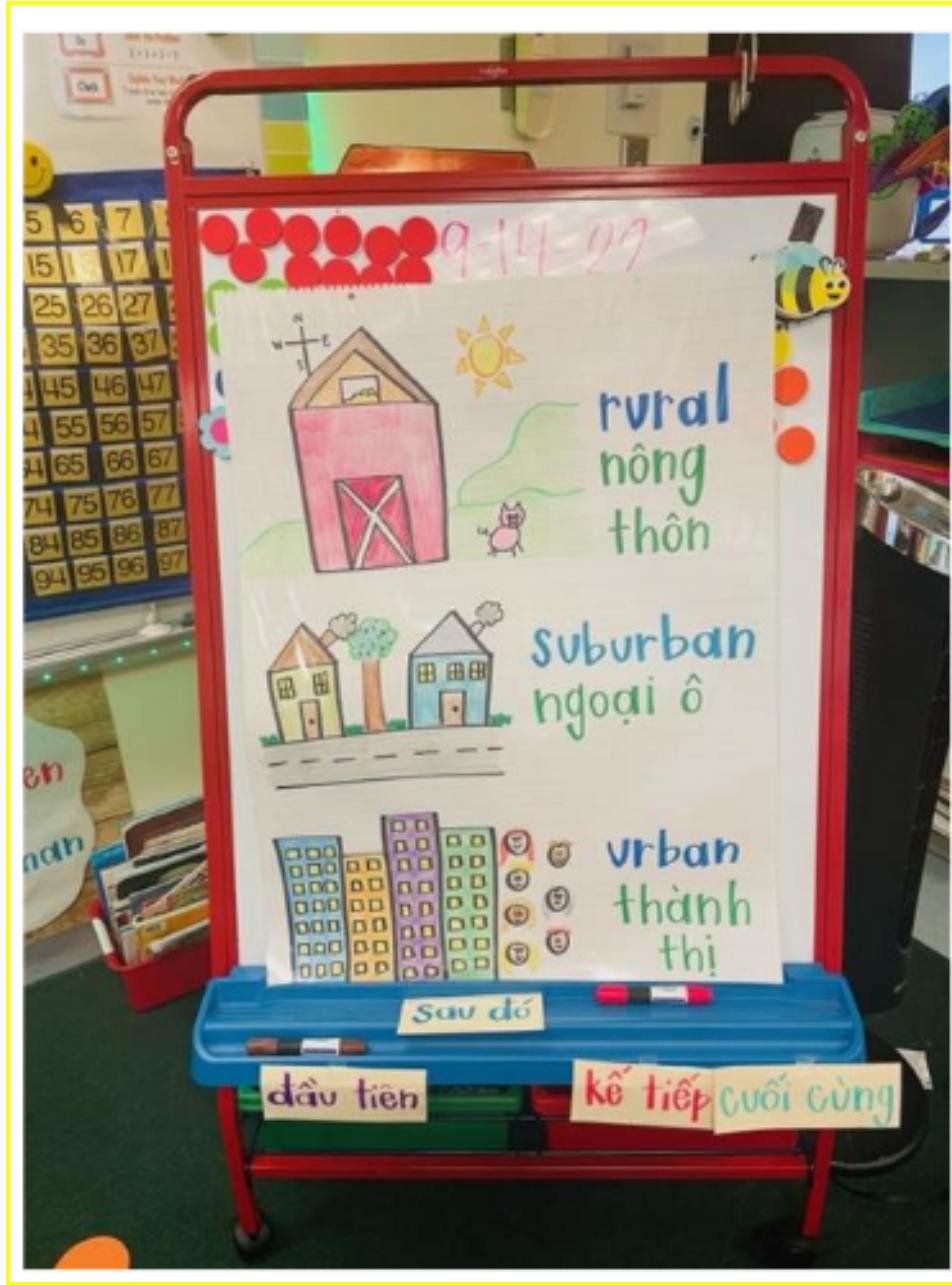 9-14-22
N
W E
S
rural
nông
thôn
suburban
ngoại ô
urban
thành
thị
sau đó
đầu tiên
kế tiếp
cuối cùng
5 6 7
15 17
25 26 27
35 36 37
45 46 47
55 56 57
65 66 67
74 75 76 77
84 85 86 87
94 95 96 97